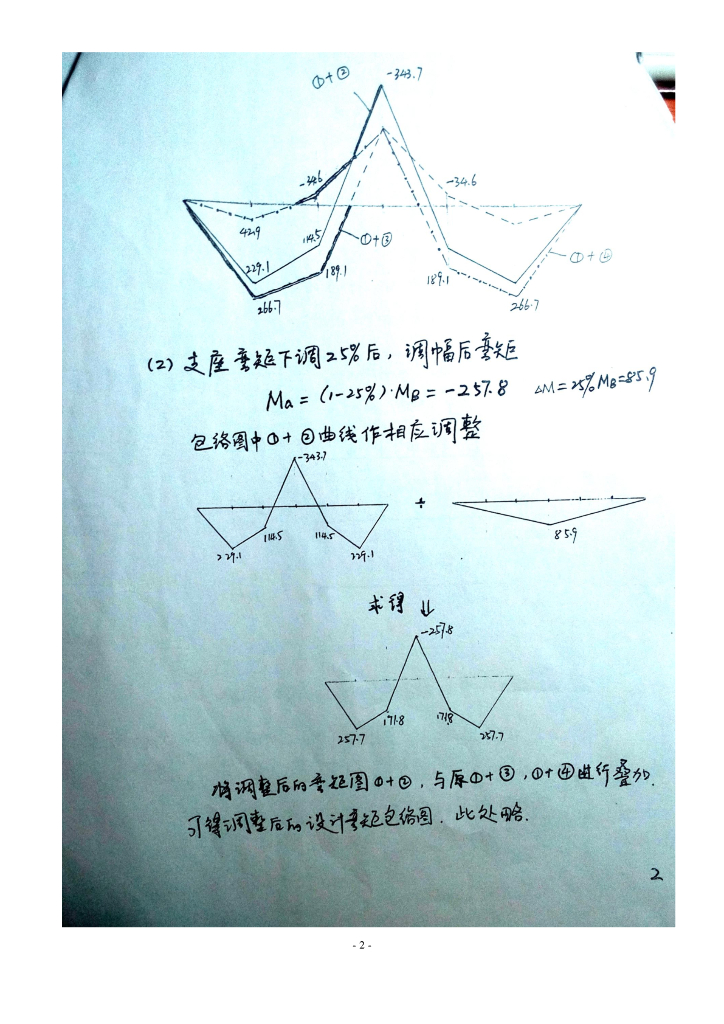 ①+②
-343.7
-34.6
-34.6
42.9
114.5
①+③
229.1
189.1
189.1
①+④
266.7
266.7
(2) 支座弯矩下调25%后，调幅后弯矩
Ma = (1-25%)·MB = -257.8 ΔM=25%MB=85.9
包络图中①+②曲线作相应调整
-343.7
÷
114.5
114.5
229.1
229.1
85.9
求得 ⇓
-257.8
171.8
171.8
257.7
257.7
将调整后的弯矩图①+②，与原①+③，①+④进行叠加.
可得调整后的设计弯矩包络图. 此处略.
2
- 2 -